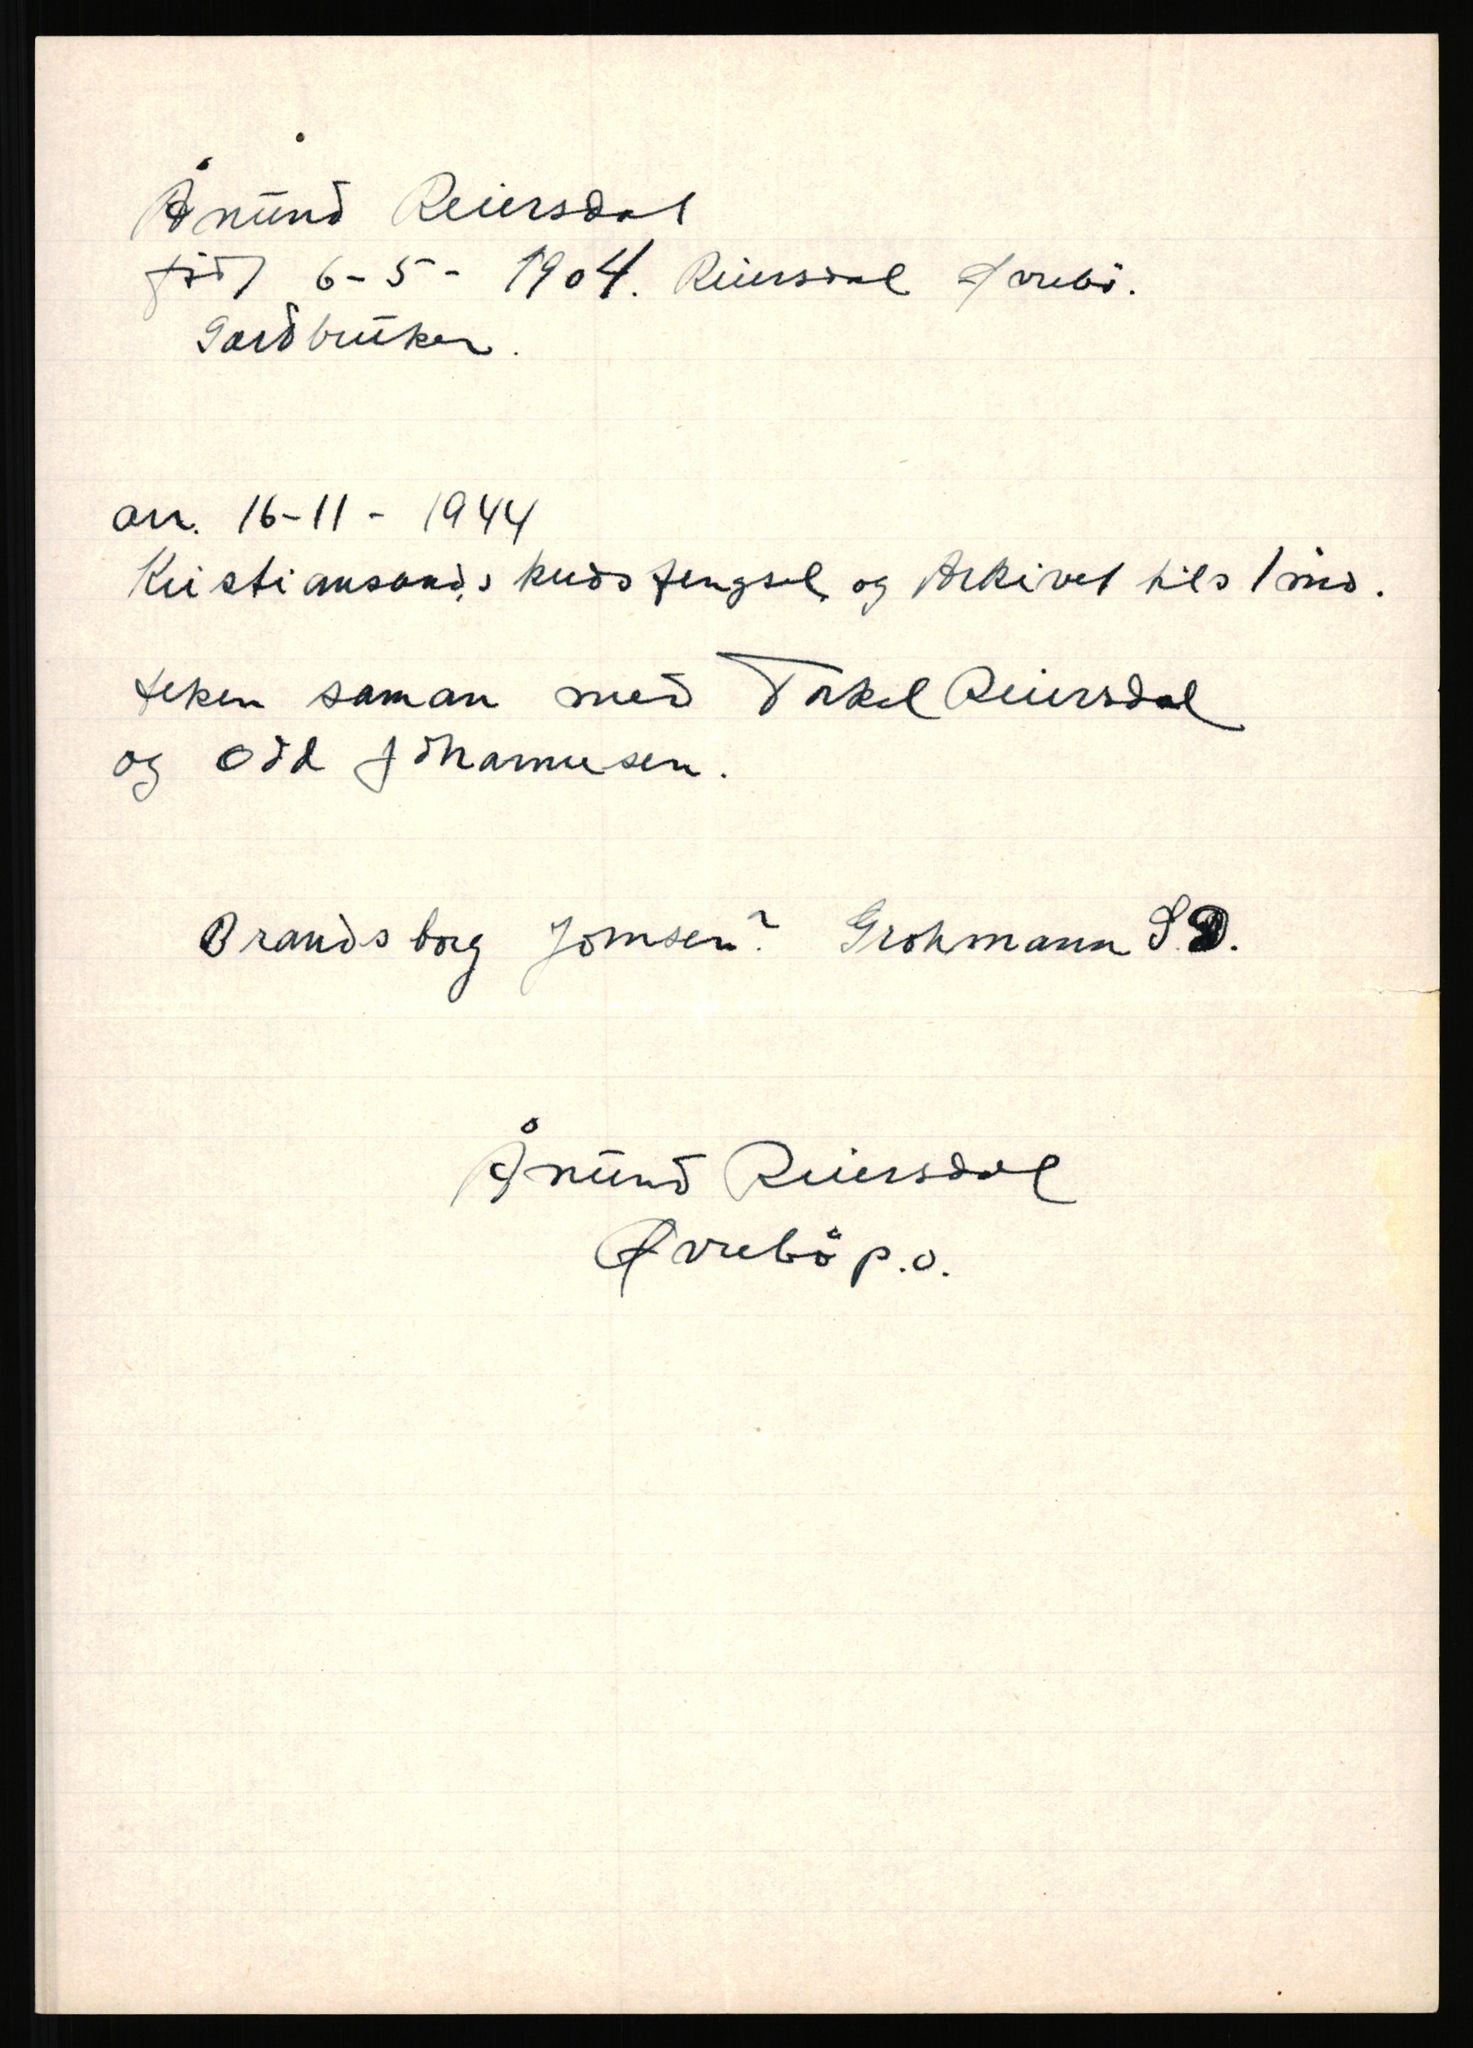 Ånund Reiersdal
född 6-5-1904. Reiersdal Øvrebö.
Gardbruker.
arr. 16-11-1944
Kristiansands kridsfengsel og Arkivet tils 1 md.
teken saman med Torkel Reiersdal
og Odd Johannesen.
Brandsborg Jomsen? Grohmann S.D.
Ånund Reiersdal
Øvrebö p.o.